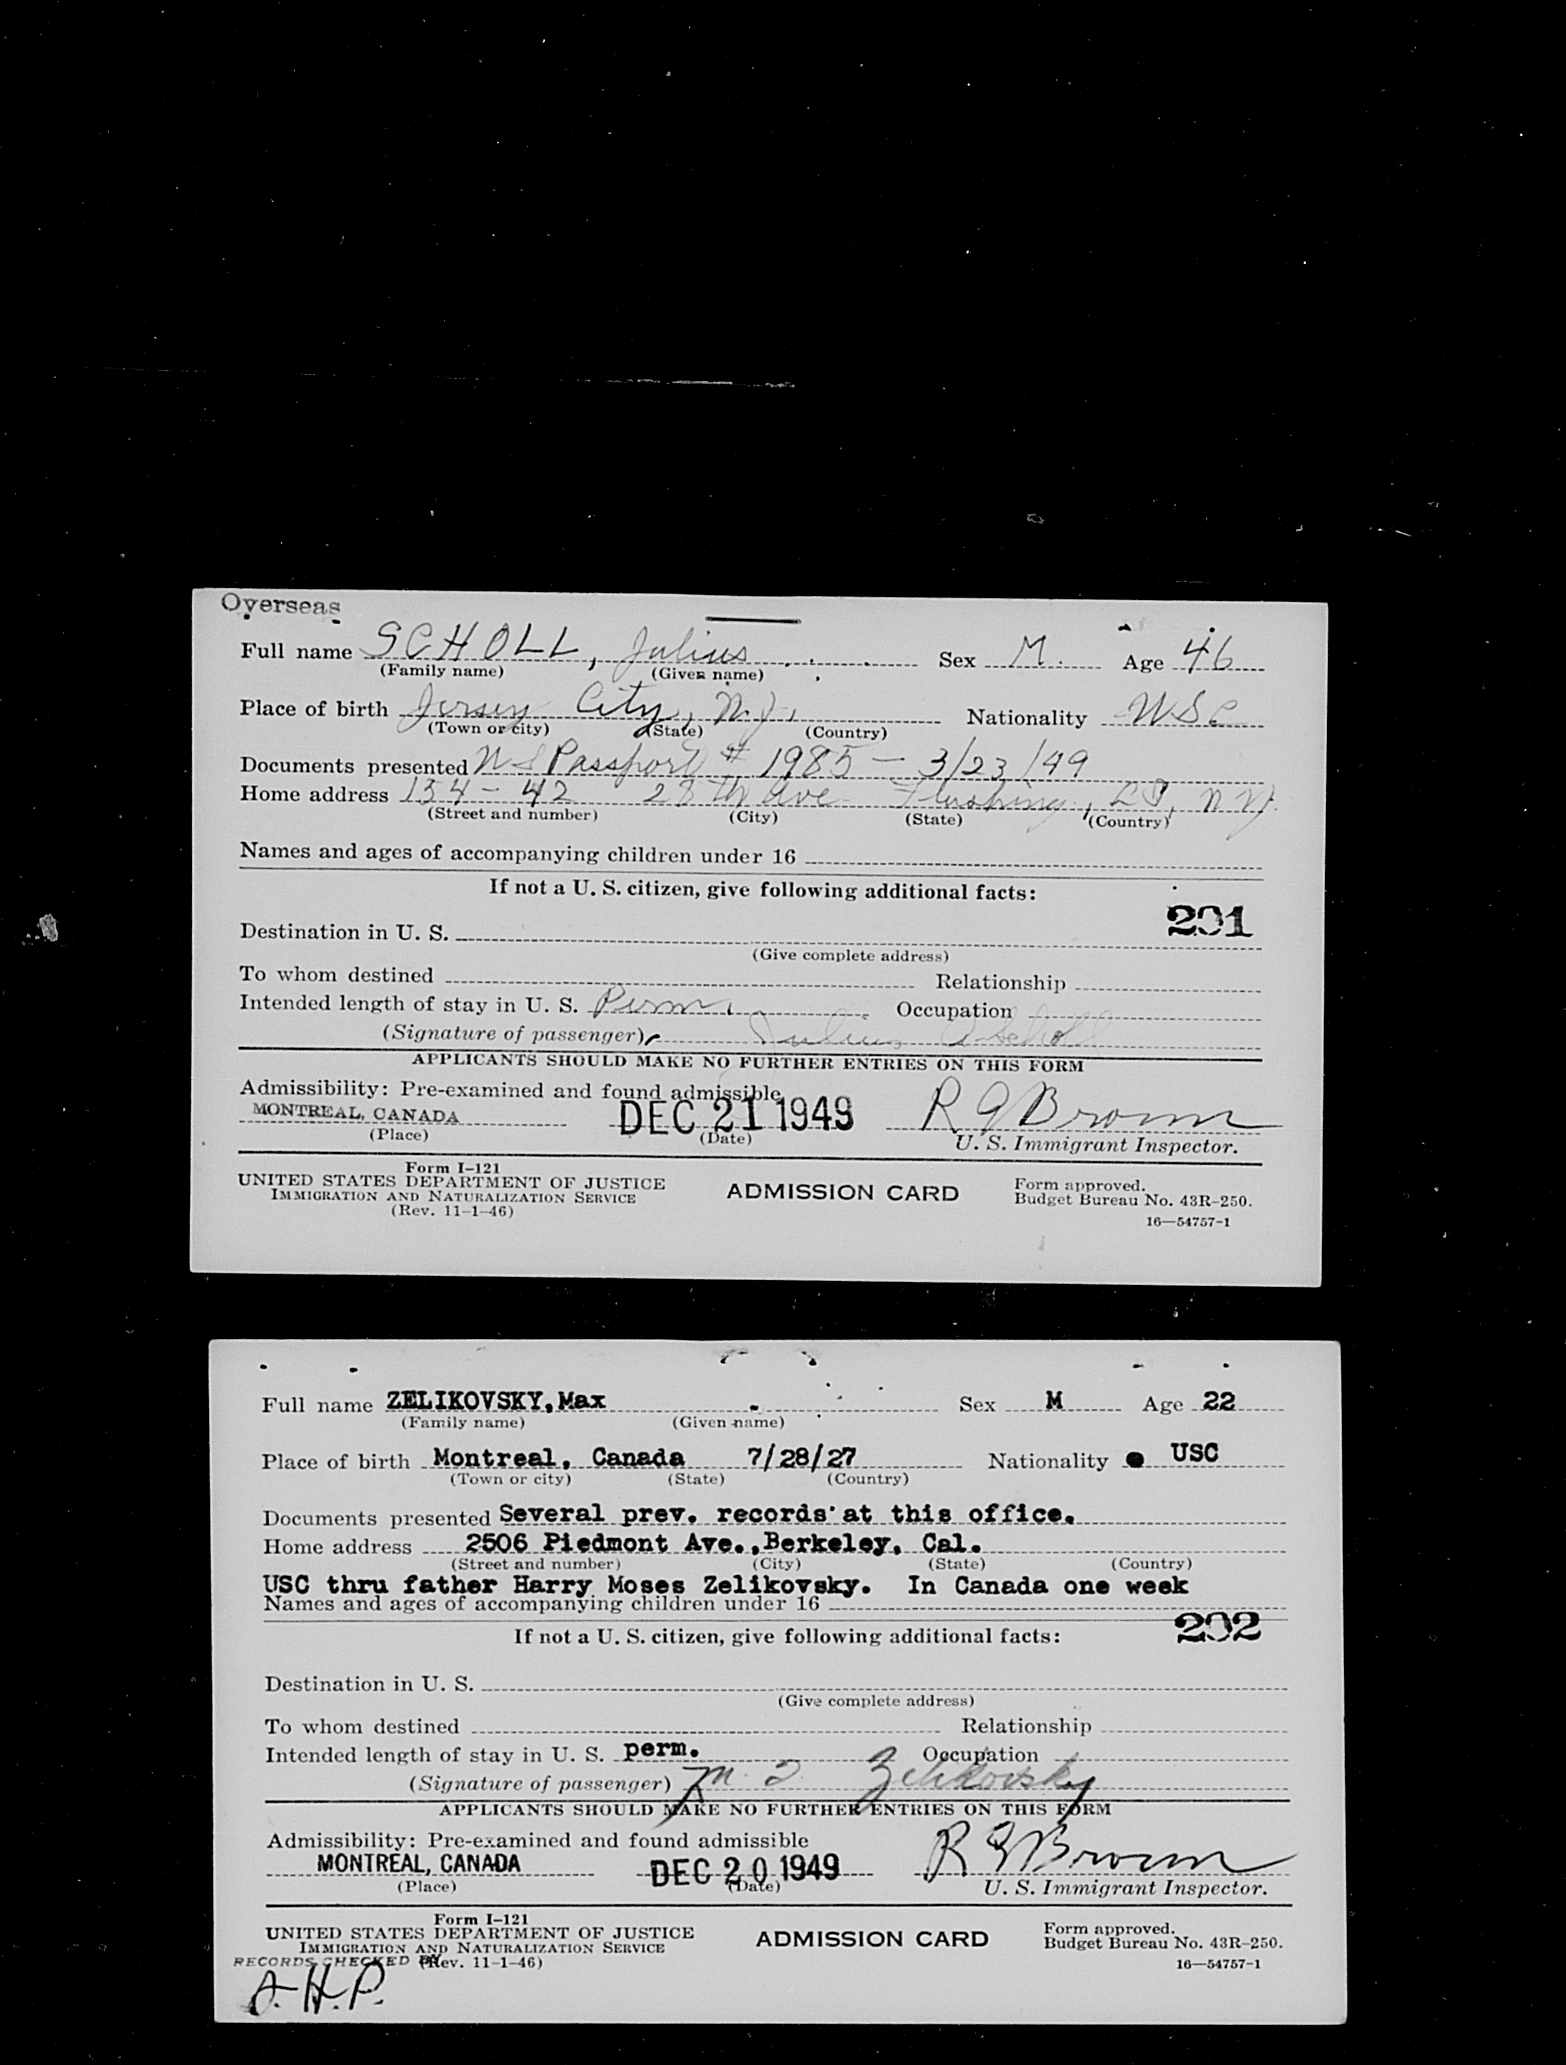 Overseas
Full name SCHOLL, Julius Sex M. Age 46
(Family name) (Given name)
Place of birth Jersey City, N.J. Nationality USC
(Town or city) (State) (Country)
Documents presented US Passport # 1985 — 3/23/49
Home address 154-42 28th Ave Flushing, LI, N.Y.
(Street and number) (City) (State) (Country)
Names and ages of accompanying children under 16
If not a U. S. citizen, give following additional facts:
201
Destination in U. S.
(Give complete address)
To whom destined Relationship
Intended length of stay in U. S. Perm. Occupation
(Signature of passenger) Julius Scholl
APPLICANTS SHOULD MAKE NO FURTHER ENTRIES ON THIS FORM
Admissibility: Pre-examined and found admissible
MONTREAL, CANADA DEC 21 1949 R G Brown
(Place) (Date) U. S. Immigrant Inspector.
Form I-121
UNITED STATES DEPARTMENT OF JUSTICE ADMISSION CARD Form approved.
IMMIGRATION AND NATURALIZATION SERVICE Budget Bureau No. 43R-250.
(Rev. 11-1-46) 16—54757-1
Full name ZELIKOVSKY, Max Sex M Age 22
(Family name) (Given name)
Place of birth Montreal, Canada 7/28/27 Nationality USC
(Town or city) (State) (Country)
Documents presented Several prev. records at this office.
Home address 2506 Piedmont Ave., Berkeley, Cal.
(Street and number) (City) (State) (Country)
USC thru father Harry Moses Zelikovsky. In Canada one week
Names and ages of accompanying children under 16
202
If not a U. S. citizen, give following additional facts:
Destination in U. S.
(Give complete address)
To whom destined Relationship
Intended length of stay in U. S. perm. Occupation
(Signature of passenger) M. Zelikovsky
APPLICANTS SHOULD MAKE NO FURTHER ENTRIES ON THIS FORM
Admissibility: Pre-examined and found admissible
MONTREAL, CANADA DEC 20 1949 R G Brown
(Place) (Date) U. S. Immigrant Inspector.
Form I-121
UNITED STATES DEPARTMENT OF JUSTICE ADMISSION CARD Form approved.
IMMIGRATION AND NATURALIZATION SERVICE Budget Bureau No. 43R-250.
RECORDS CHECKED BY (Rev. 11-1-46) 16—54757-1
A.H.P.